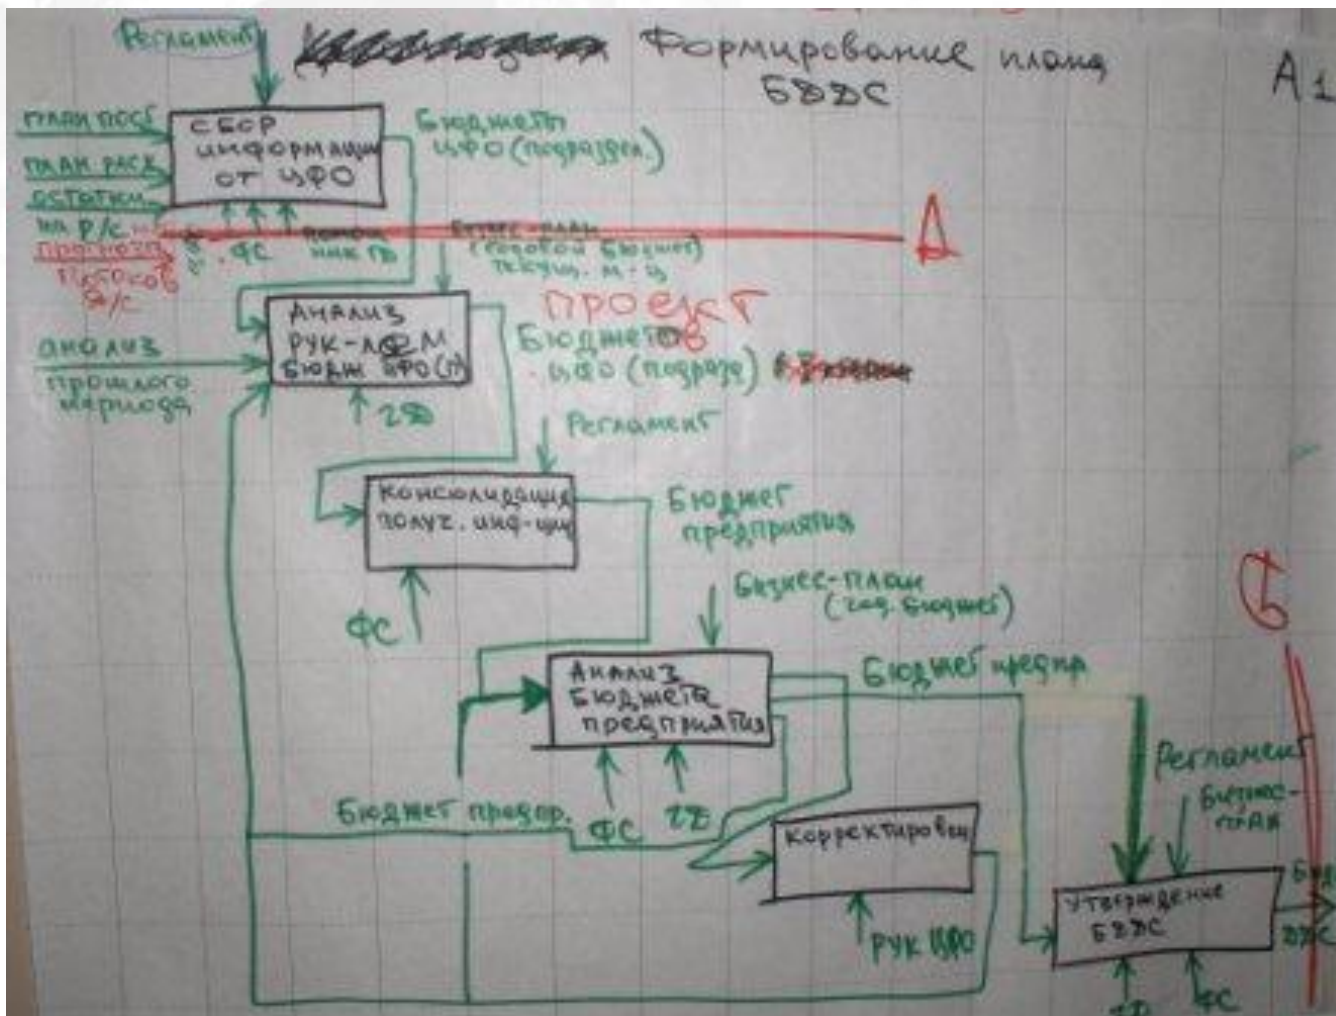 Регламент
Формирование плана
БДДС
А1
план пост
план расх
остатки
на р/с
прогноз
потоков
д/с
сбор
информации
от ЦФО
Бюджеты
ЦФО (подраздел.)
ФС
помощ
ник ГД
Бизнес-план
(годовой бюджет)
текущ. м-ц
А
Анализ
рук-лем
бюдж ЦФО(п)
анализ
прошлого
периода
ГД
проект
Бюджетов
ЦФО (подразд)
Регламент
Консолидация
получ. инф-ции
Бюджет
предприятия
ФС
Бизнес-план
(год. бюджет)
Б
Анализ
бюджета
предприятия
Бюджет предпр
Бюджет предпр.
ФС
ГД
Регламент
Бизнес-
план
корректировка
рук ЦФО
Утверждение
БДДС
Бюд
ДДС
ГД
ФС